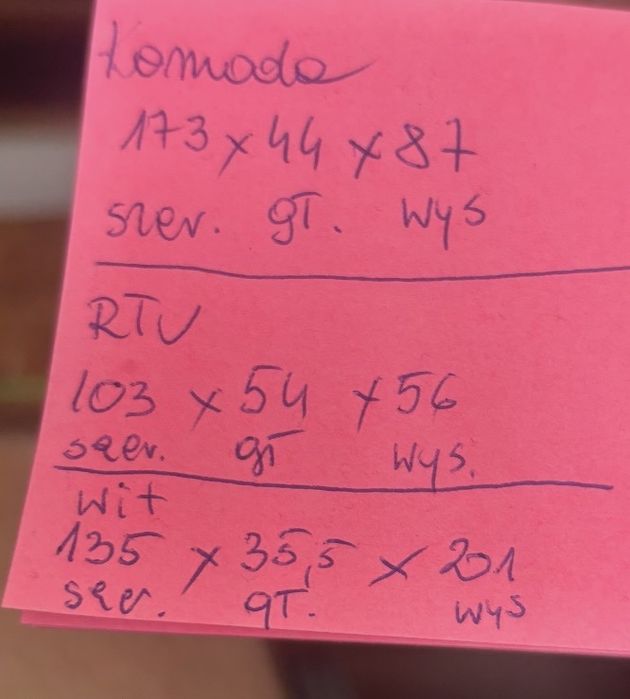 Komoda
173 x 44 x 87
szer. gł. wys
RTV
103 x 54 x 56
szer. gł wys.
wit
135 x 35,5 x 201
szer. gł. wys